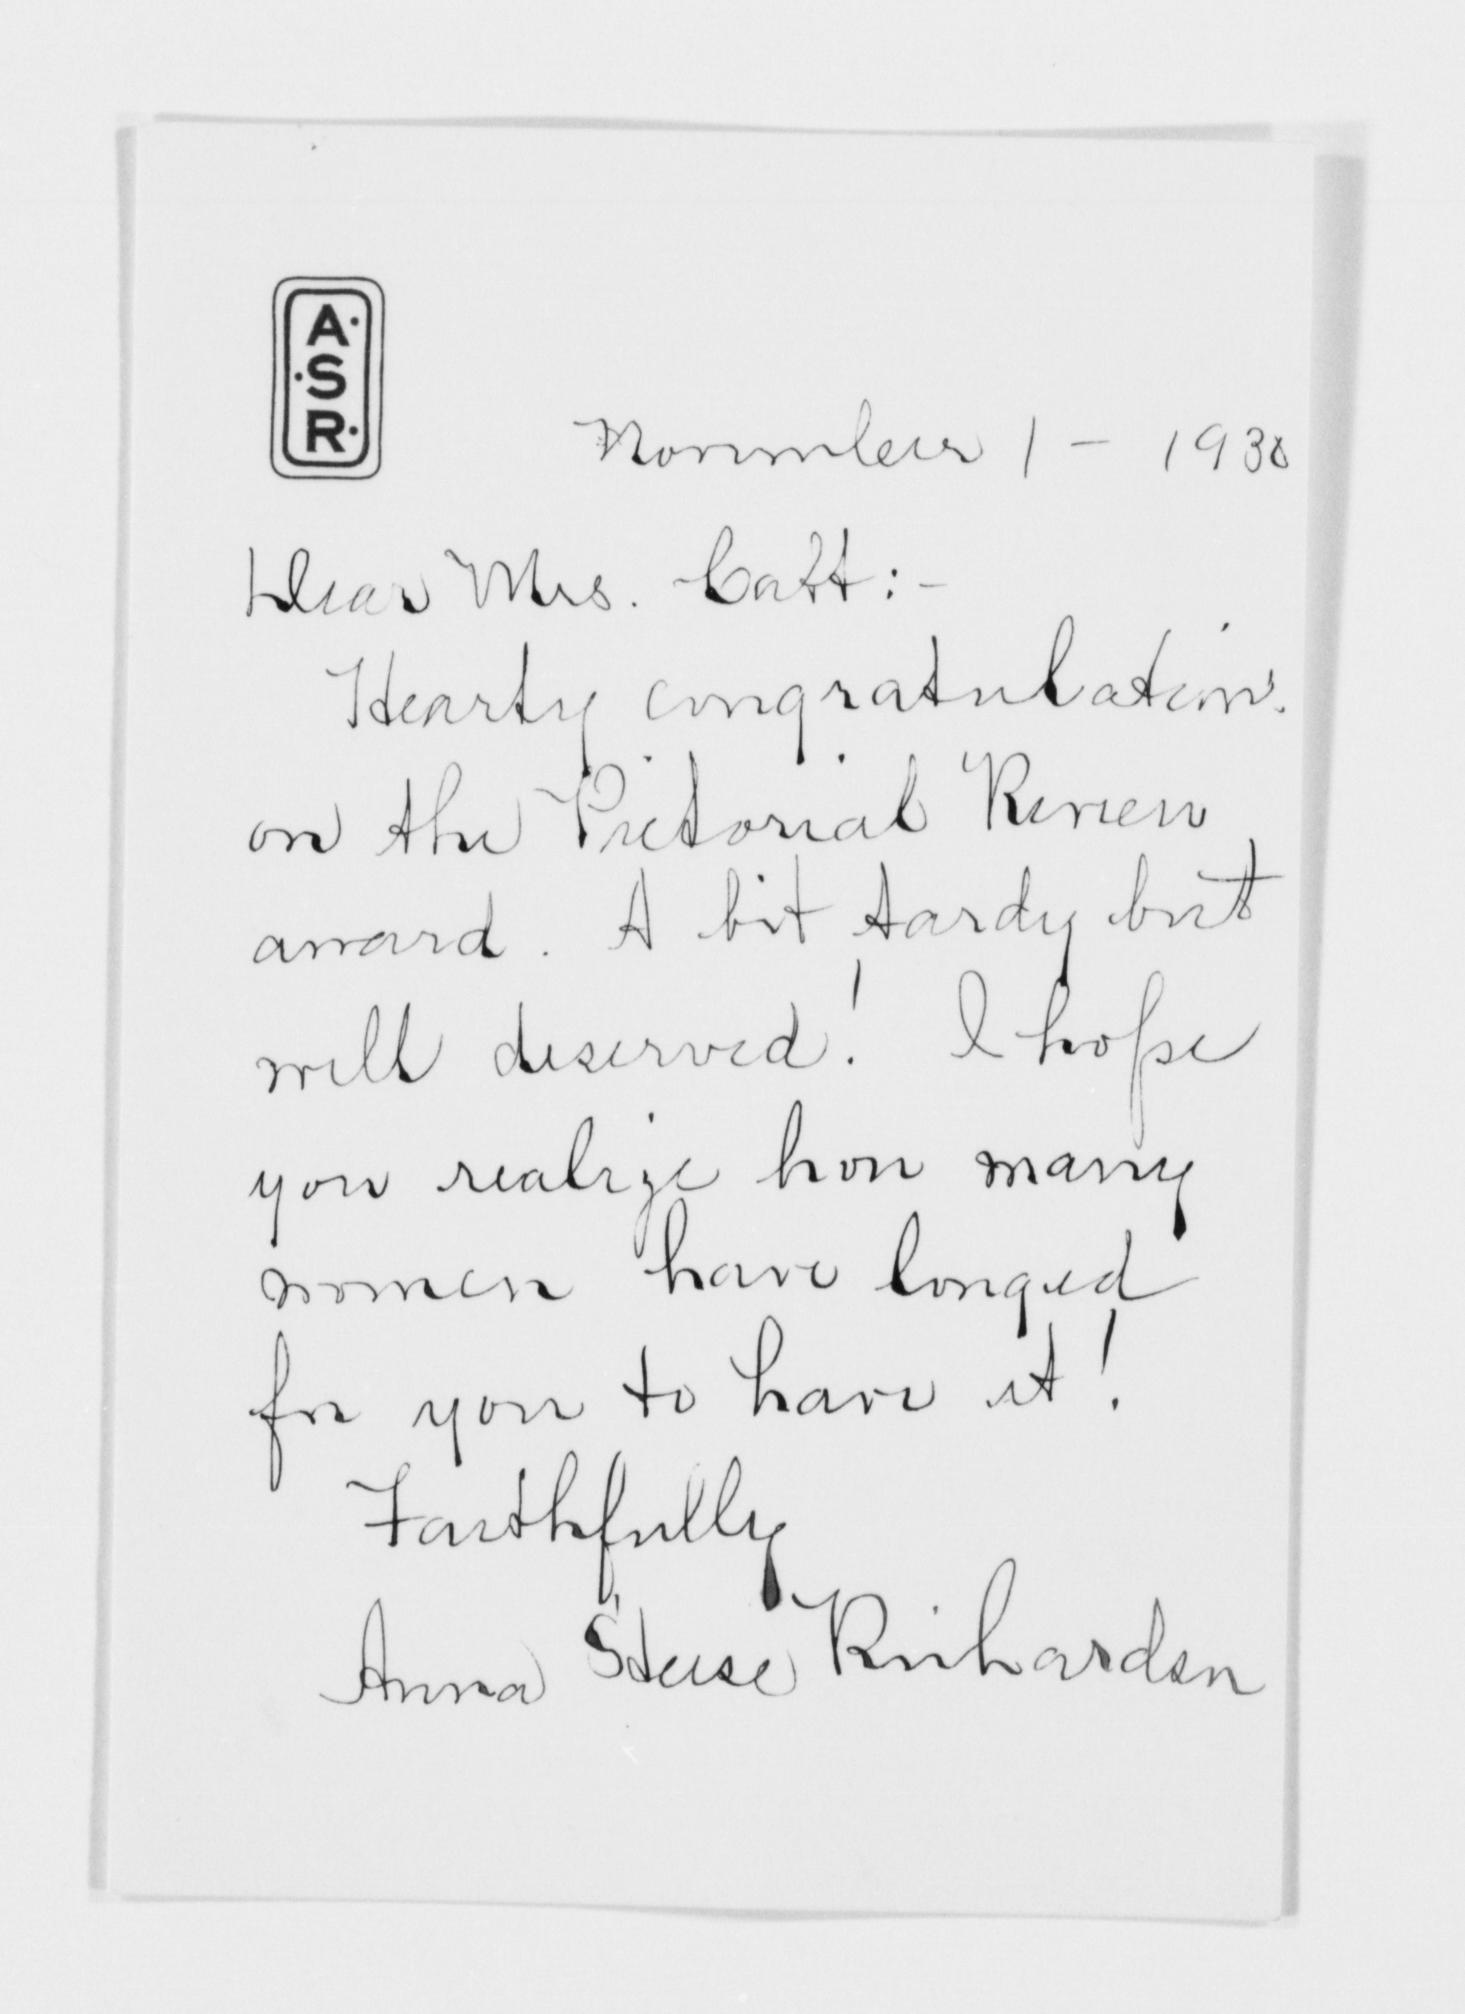 A.
.S
R.
November 1 - 1930
Dear Mrs. Catt:-
Hearty congratulations.
on the Pictorial Review
award. A bit tardy but
well deserved! I hope
you realize how many
women have longed
for you to have it!
Faithfully
Anna Steese Richardson